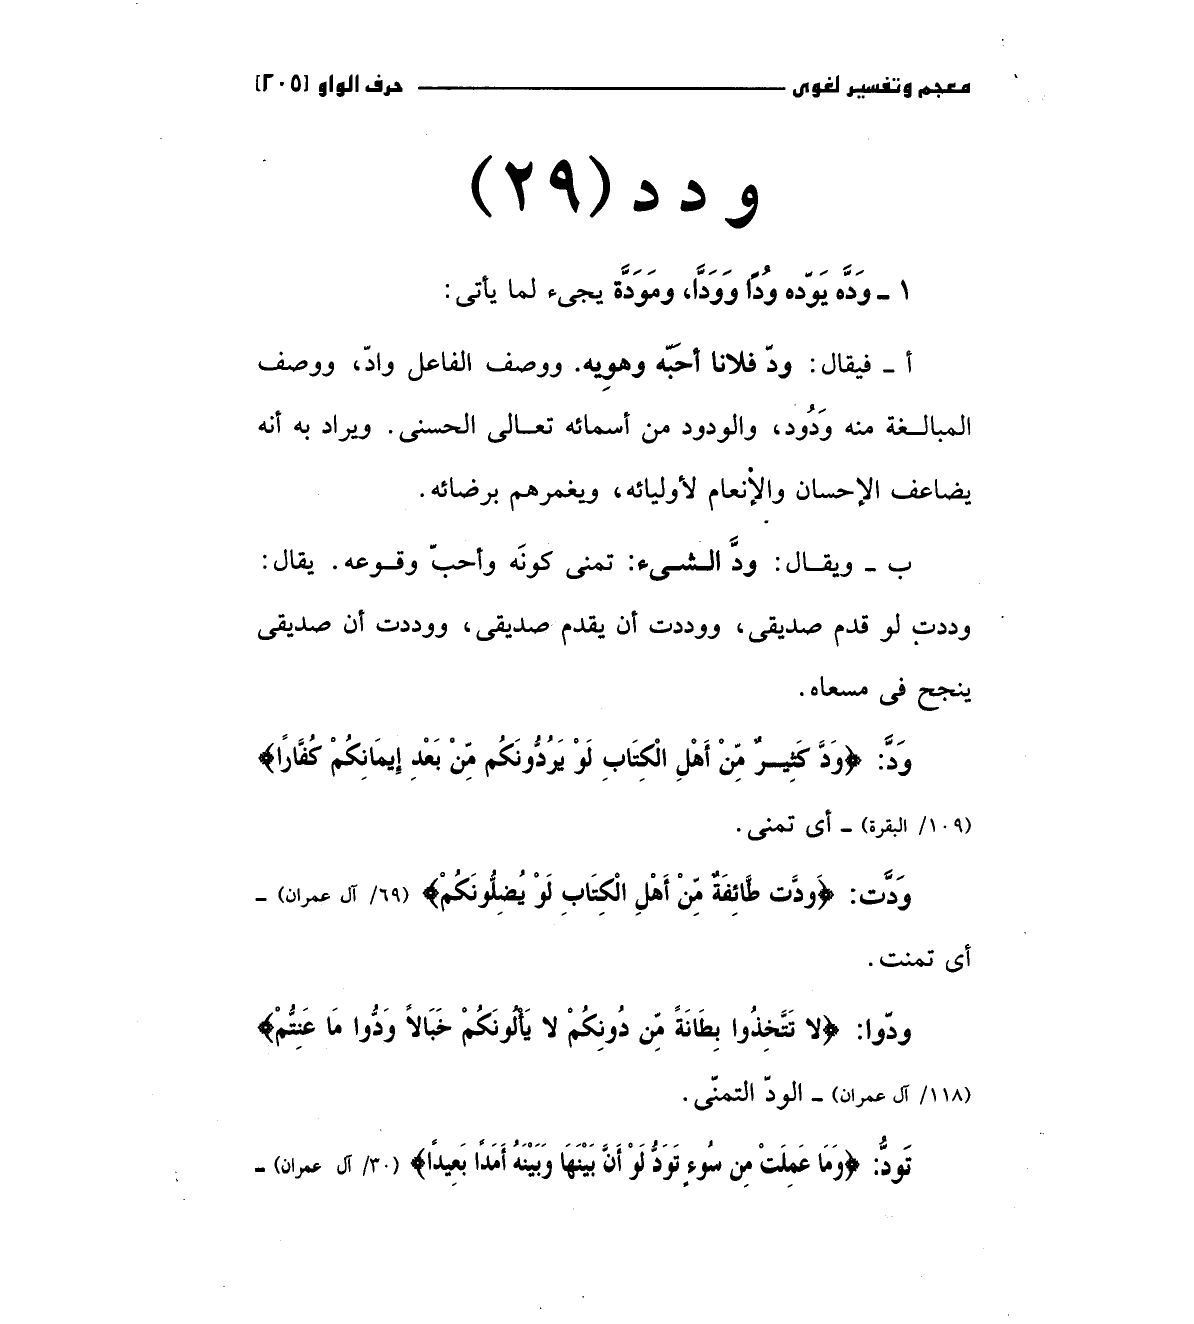 معجم وتفسير لغوى ــــــــــــــــــ حرف الواو [٢٠٥]
و د د (٢٩)
١ ـ وَدَّه يَوَدّه وُدًّا وَوَدًّا، ومَوَدَّة يجىء لما يأتى:
أ ـ فيقال: ودّ فلانا أحَبَّه وهوِيه. ووصف الفاعل وادّ، ووصف
المبالـغة منه وَدُود، والودود من أسمائه تعـالى الحسنى. ويراد به أنه
يضاعف الإحسان والإنعام لأوليائه، ويغمرهم برضائه.
ب ـ ويقـال: ودَّ الـشـىء: تمنى كونَه وأحبّ وقـوعه. يقال:
وددت لو قدم صديقى، ووددت أن يقدم صديقى، ووددت أن صديقى
ينجح فى مسعاه.
وَدَّ: ﴿وَدَّ كَثِيـرٌ مِّنْ أَهْلِ الْكِتَابِ لَوْ يَرُدُّونَكُم مِّنْ بَعْدِ إِيمَانِكُمْ كُفَّارًا﴾
(١٠٩/ البقرة) ـ أى تمنى.
وَدَّت: ﴿وَدَّت طَّائِفَةٌ مِّنْ أَهْلِ الْكِتَابِ لَوْ يُضِلُّونَكُمْ﴾ (٦٩/ آل عمران) ـ
أى تمنت.
ودّوا: ﴿لا تَتَّخِذُوا بِطَانَةً مِّن دُونِكُمْ لا يَأْلُونَكُمْ خَبَالاً وَدُّوا مَا عَنِتُّمْ﴾
(١١٨/ آل عمران) ـ الودّ التمنّى.
تَودُّ: ﴿وَمَا عَمِلَتْ مِن سُوءٍ تَوَدُّ لَوْ أَنَّ بَيْنَهَا وَبَيْنَهُ أَمَدًا بَعِيدًا﴾ (٣٠/ آل عمران) ـ